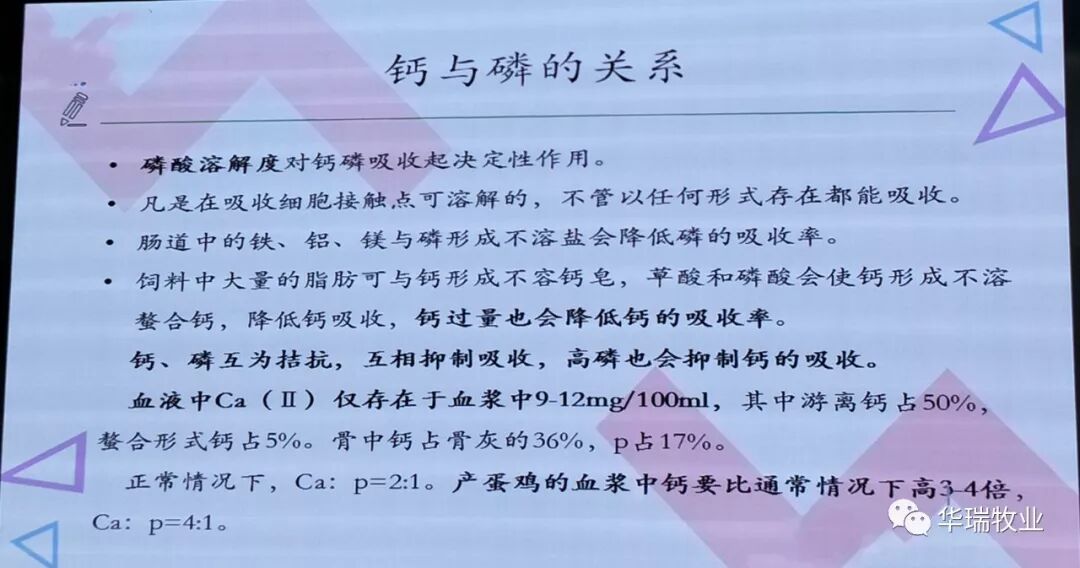 钙与磷的关系
• 磷酸溶解度对钙磷吸收起决定性作用。
• 凡是在吸收细胞接触点可溶解的，不管以任何形式存在都能吸收。
• 肠道中的铁、铝、镁与磷形成不溶盐会降低磷的吸收率。
• 饲料中大量的脂肪可与钙形成不容钙皂，草酸和磷酸会使钙形成不溶
螯合钙，降低钙吸收，钙过量也会降低钙的吸收率。
钙、磷互为拮抗，互相抑制吸收，高磷也会抑制钙的吸收。
血液中Ca（Ⅱ）仅存在于血浆中9-12mg/100ml，其中游离钙占50%，
螯合形式钙占5%。骨中钙占骨灰的36%，p占17%。
正常情况下，Ca：p=2:1。产蛋鸡的血浆中钙要比通常情况下高3-4倍，
Ca：p=4:1。
华瑞牧业